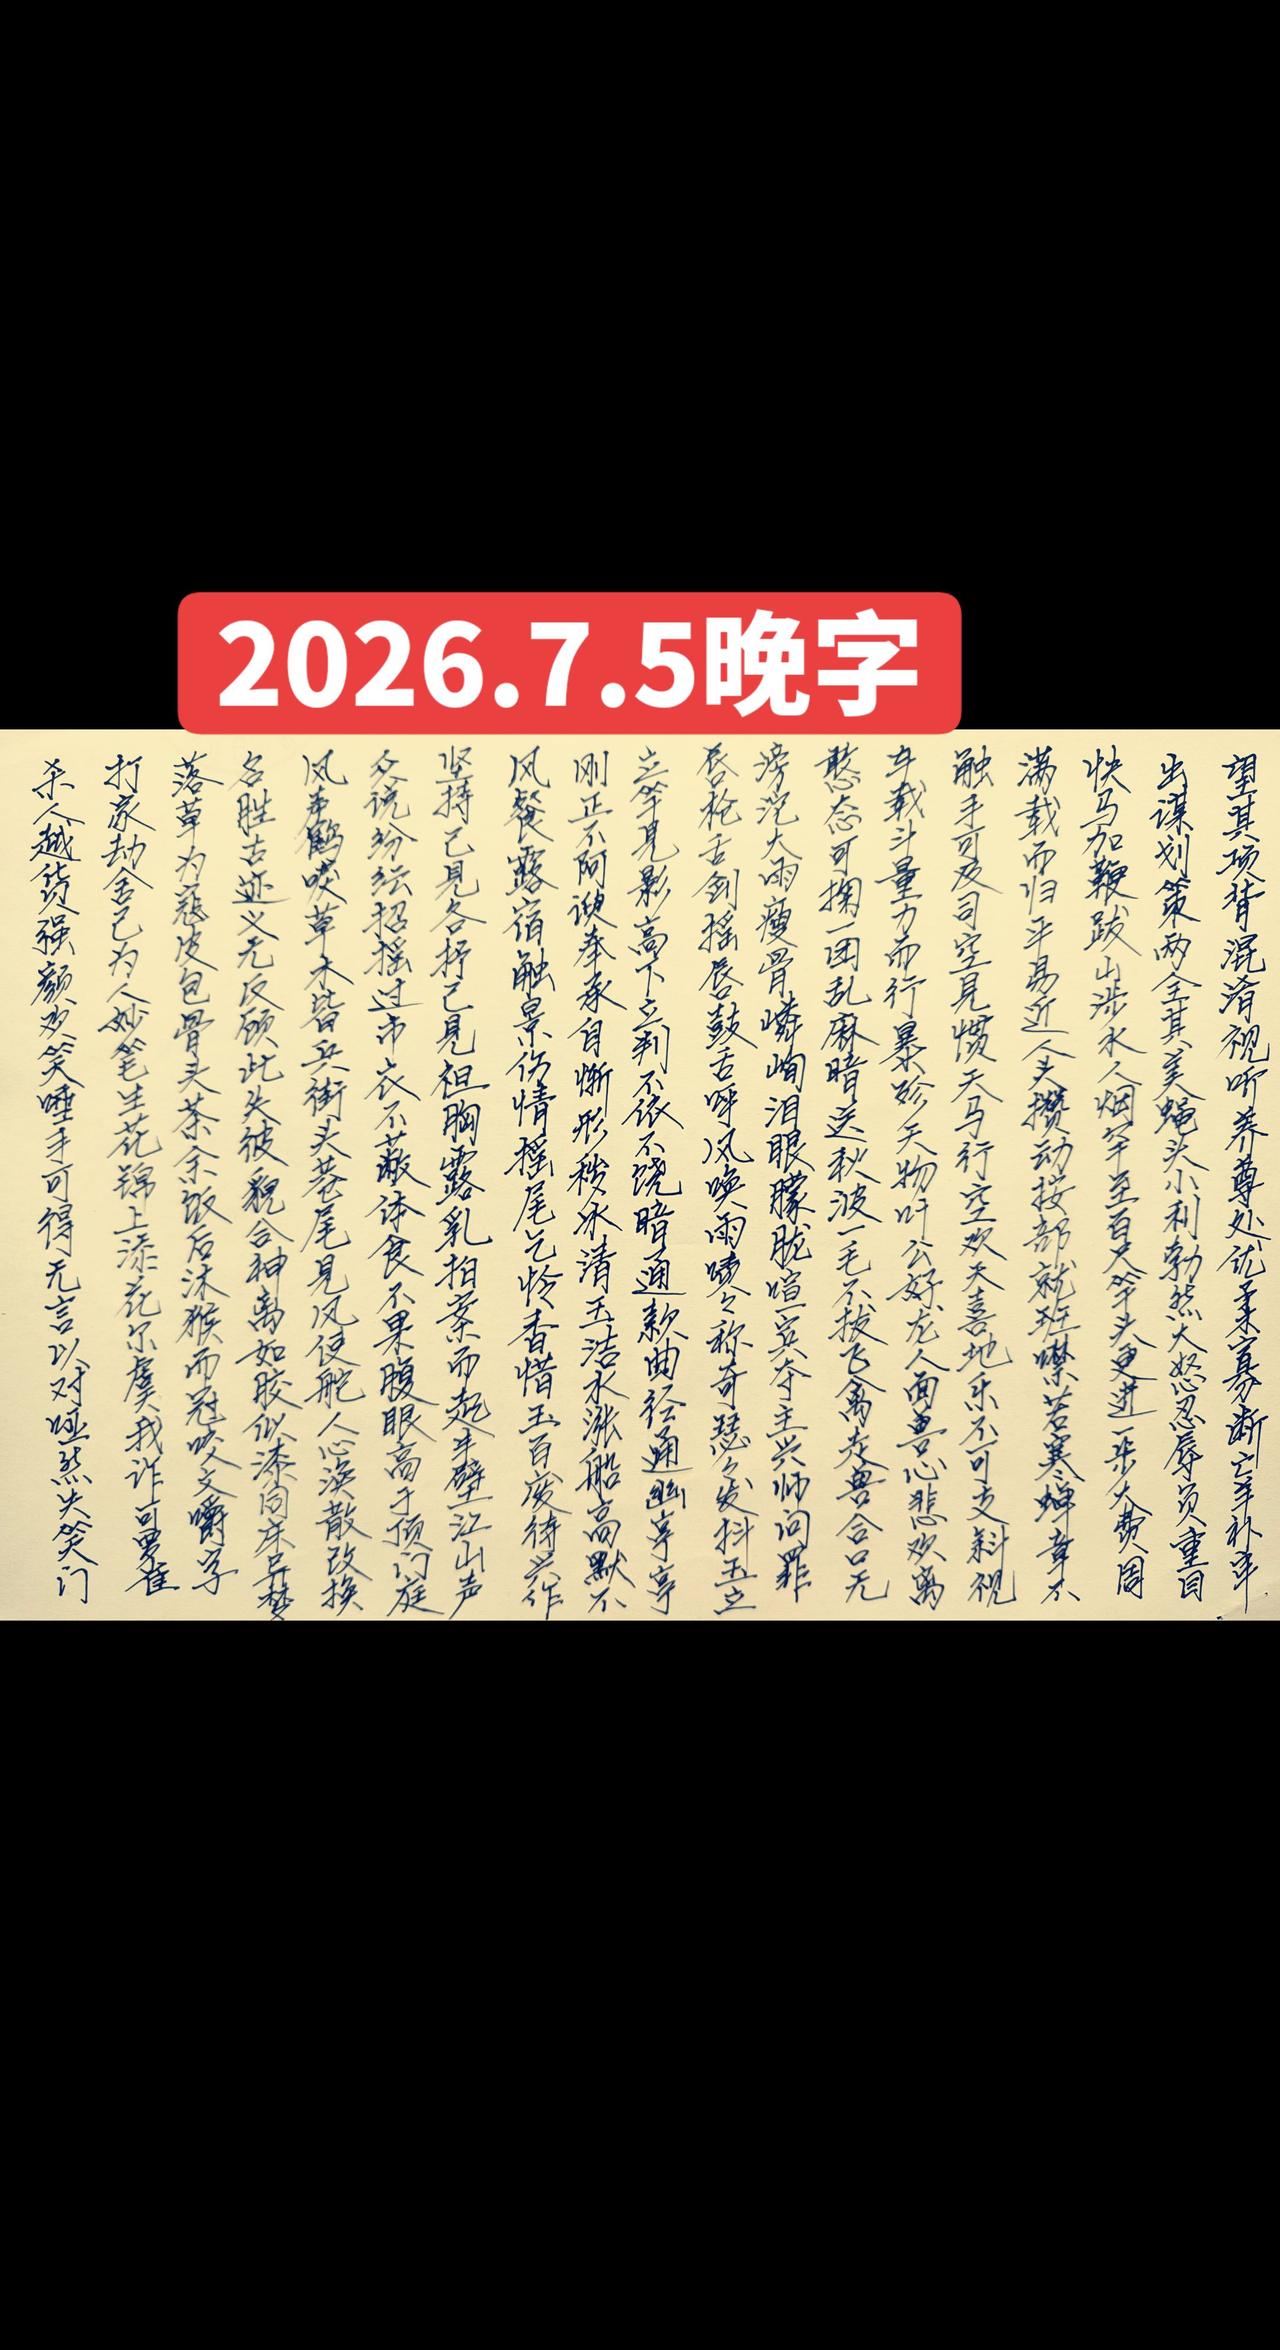 2026.7.5晚字
望其项背混淆视听养尊处优柔寡断亡羊补牢
出谋划策两全其美蝇头小利勃然大怒忍辱负重目
快马加鞭跋山涉水人烟罕至百尺竿头更进一步大费周
满载而归平易近人头攒动按部就班噤若寒蝉章不
触手可及司空见惯天马行空欢天喜地乐不可支斜视
车载斗量力而行暴殄天物叶公好龙人面兽心悲欢离
憨态可掬一团乱麻暗送秋波一毛不拔飞禽走兽合口无
滂沱大雨瘦骨嶙峋泪眼朦胧喧宾夺主兴师问罪
唇枪舌剑摇唇鼓舌呼风唤雨啧々称奇瑟々发抖玉立
立竿见影高下立判不依不饶暗通款曲径通幽亭亭
刚正不阿谀奉承自惭形秽冰清玉洁水涨船高默不
风餐露宿触景伤情摇尾乞怜香惜玉百废待兴作
坚持己见各抒己见袒胸露乳拍案而起半壁江山声
众说纷纭招摇过市衣不蔽体食不果腹眼高于顶门庭
风声鹤唳草木皆兵街头巷尾见风使舵人心涣散改换
名胜古迹义无反顾此失彼貌合神离如胶似漆同床异梦
落草为寇皮包骨头茶余饭后沐猴而冠咬文嚼字
打家劫舍己为人妙笔生花锦上添花尔虞我诈可罗雀
杀人越货强颜欢笑唾手可得无言以对哑然失笑门